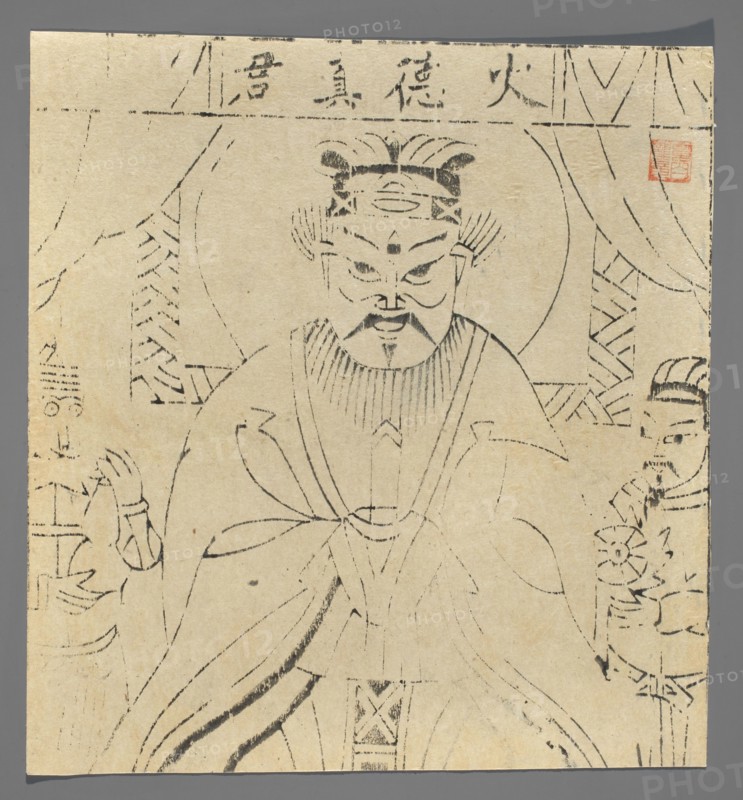 火德真君
PHOTO12